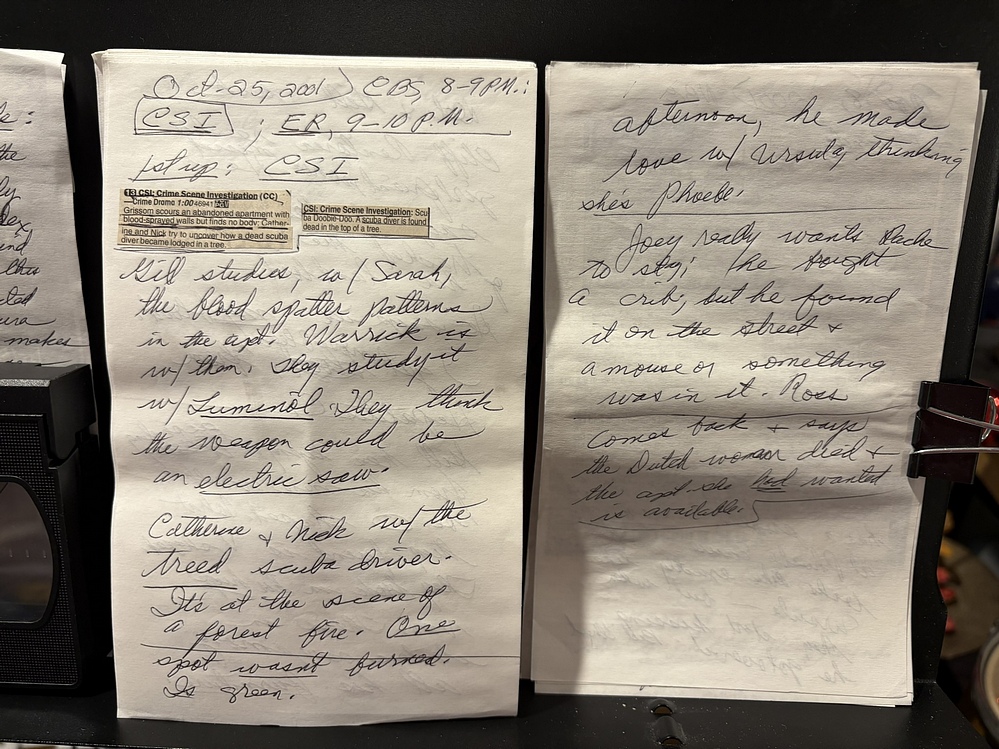 le:
the
ly
dex,
and
thru
ura
makes
Oct-25, 2001) CBS, 8-9 P.M.:
CSI ; ER, 9-10 P.M.
1st up: CSI
CSI: Crime Scene Investigation (CC)
Crime Drama 1:00 46941
Grissom scours an abandoned apartment with
blood-sprayed walls but finds no body; Cather-
ine and Nick try to uncover how a dead scuba
diver became lodged in a tree.
CSI: Crime Scene Investigation: Scu
ba Doobie-Doo. A scuba diver is found
dead in the top of a tree.
Gill studies, w/ Sarah,
the blood spatter patterns
in the apt. Warrick is
w/ them. They study it
w/ Luminol They think
the weapon could be
an electric saw.
Catherine & Nick w/ the
treed scuba driver.
It's at the scene of
a forest fire. One
spot wasn't burned.
Is green.
afternoon, he made
love w/ Ursula thinking
shes Phoebe.
Joey really wants
to stay; he bought
a crib, but he found
it on the street &
a mouse or something
was in it. Ross
comes back & says
the Dutch woman died &
the apt. she had wanted
is available.